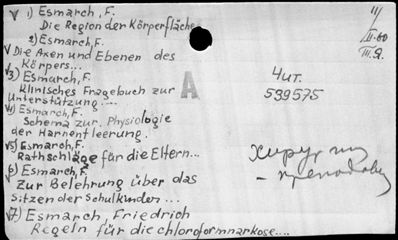 v 1) Esmarch, F.
Die Region der Körperfläche
2) Esmarch, F.
v Die Axen und Ebenen des
Körpers...
v3) Esmarch, F.
Klinisches Fragebuch zur
Unterstützung....
v4) Esmarch, F.
Schema zur Physiologie
der Harnentleerung.
v5) Esmarch, F.
Rathschläge für die Eltern...
v6) Esmarch, F.
Zur Belehrung über das
Sitzen der Schulkinder...
v7) Esmarch, Friedrich
Regeln für die chloroformnarkose....
A
Чит.
539575
Хирург
- преподав